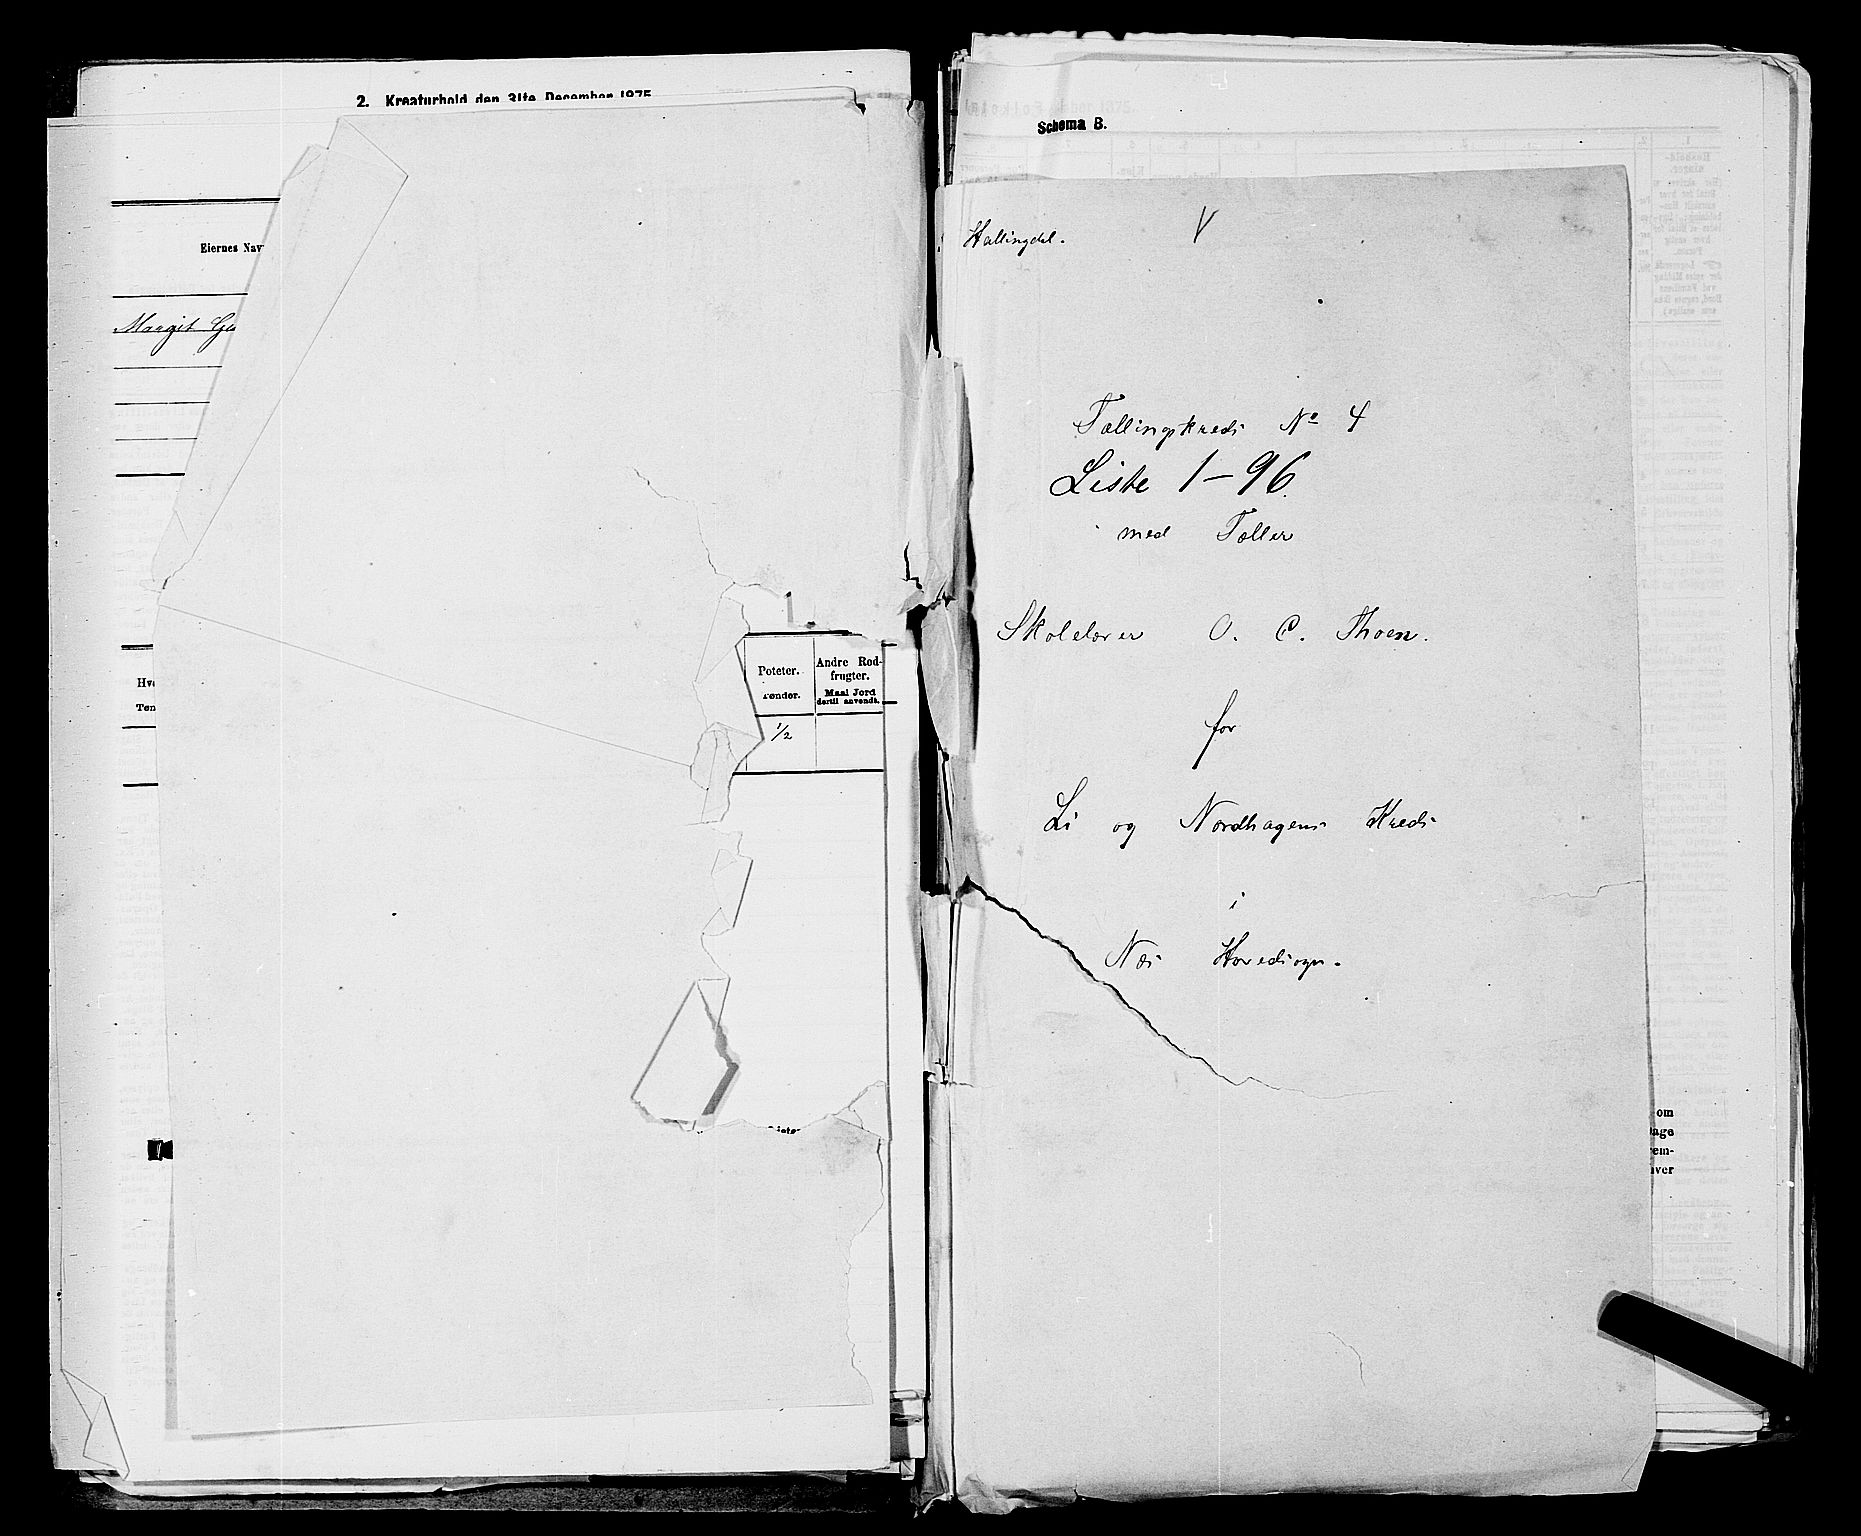 2. Kreaturhold den 31te December 1875
Eiernes Nav
Margit
Poteter.
Tønder.
Andre Rod-
frugter.
Maal Jord
dertil anvendt.
1/2
Schema B.
Hallingdal.
V
Tællingskreds No 4
Liste 1-96.
med Tæller
Skolelærer O. C. Thoen.
for
Li og Nordhagens Kreds
i
Næs Hovedsogn.
om